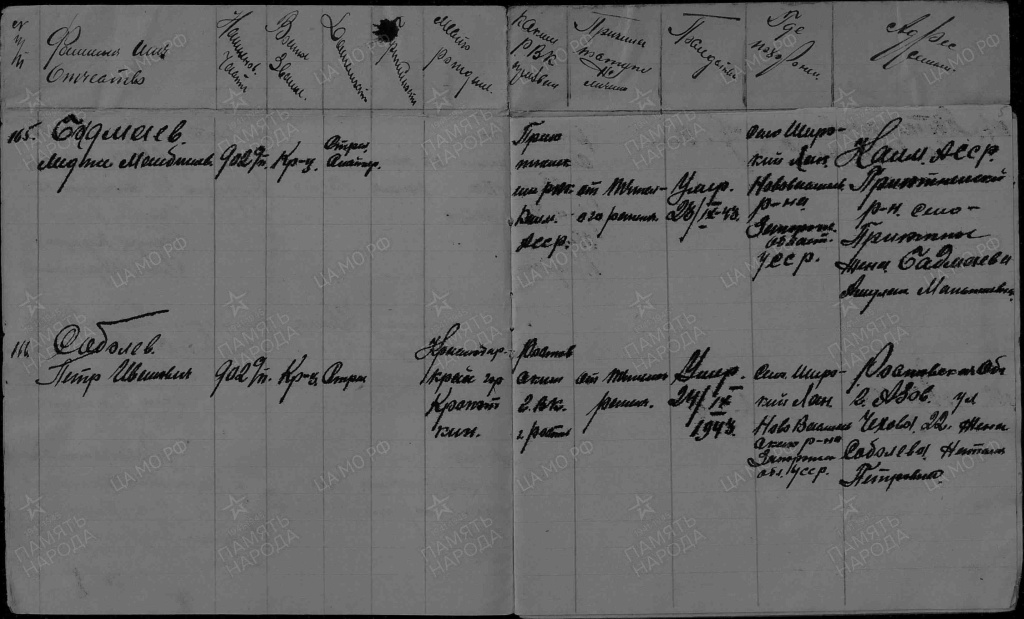 № п/п
Фамилия Имя Отчество
Наименов. части
Воинск. Звание
Должность
Место рождения
Каким РВК призван
Причина
Где похорон.
Адрес семьи
165. Бадмаев.
902 Сп. Кр-ц. Стрел.
Приютненским рвк Калм. АССР.
от тяжелого ранения
Умер. 23/IX-43.
село Широкий Лан
р-на
Запорожс. област. УССР.
Калм. АССР.
Приютненский
р-н. село-
Приютное
жена Бадмаева
166. Соболев.
Петр Иванович 902 Сп. Кр-ц Стрел
Краснодар.
край гор
Кропоткин.
Ростовским г.вк. г. Ростов
от тяжел. ранен.
Умер. 24/IX 1943.
Село Широкий Лан
Ново Васильевского р-на
Запорожс. обл. УССР.
Ростовская Обл
г. Азов. ул
Чехова 22. жена
Соболева Наталия
Петровна.
ПАМЯТЬ НАРОДА
ЦА МО РФ